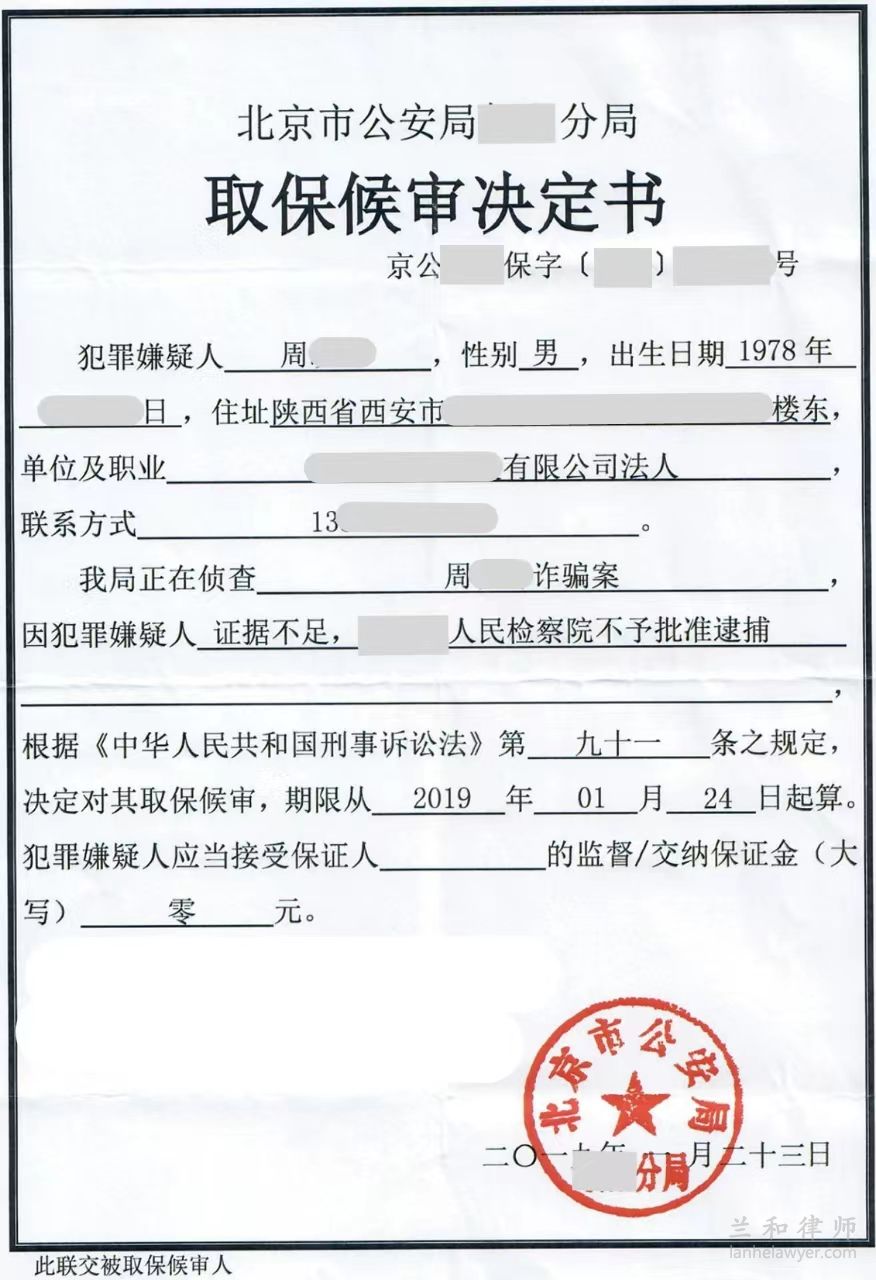 北京市公安局 分局
取保候审决定书
京公 保字〔 〕 号
犯罪嫌疑人 周 ，性别 男 ，出生日期 1978 年
日，住址陕西省西安市 楼东，
单位及职业 有限公司法人 ，
联系方式 13 。
我局正在侦查 周 诈骗案 ，
因犯罪嫌疑人 证据不足， 人民检察院不予批准逮捕
，
根据《中华人民共和国刑事诉讼法》第 九十一 条之规定，
决定对其取保候审，期限从 2019 年 01 月 24 日起算。
犯罪嫌疑人应当接受保证人 的监督/交纳保证金（大
写） 零 元。
北京市公安局
二〇一 年 月二十三日
分局
兰和律师
lanhelawyer.com
此联交被取保候审人